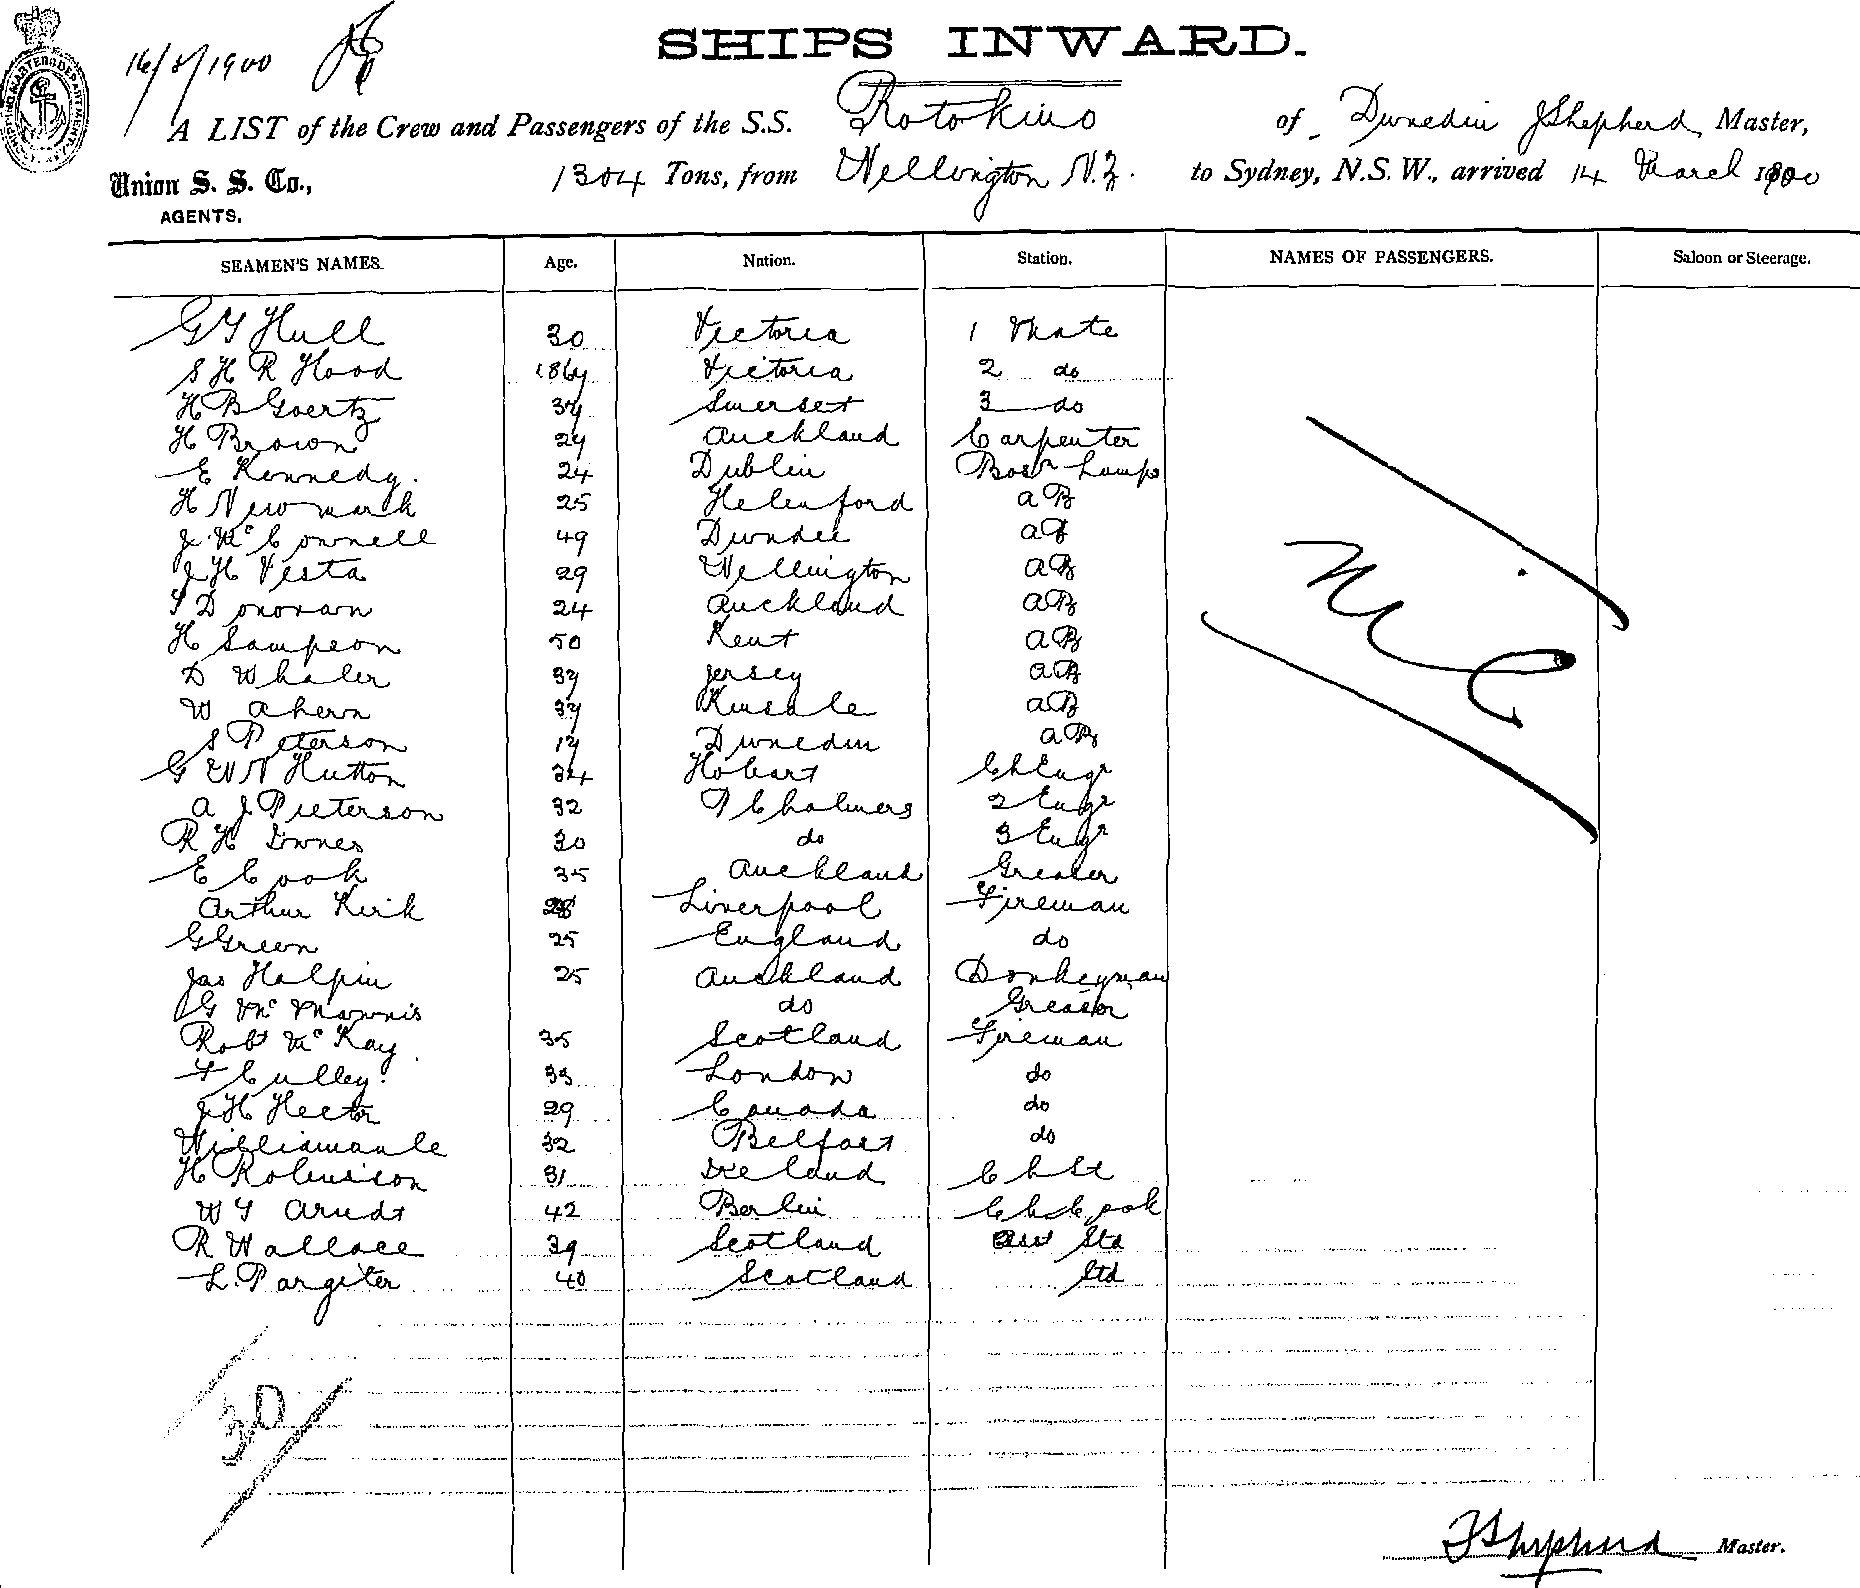 16/3/1900
SHIPS INWARD.
A LIST of the Crew and Passengers of the S.S. Rotokino of Dunedin J Shepherd, Master,
Union S. S. Co., 1304 Tons, from Wellington N.Z. to Sydney, N.S.W., arrived 14 March 1900
AGENTS.
SEAMEN'S NAMES. Age. Nation. Station. NAMES OF PASSENGERS. Saloon or Steerage.
G T Hull 30 Victoria 1 Mate
S H R Hood Victoria 2 do
H B Goertz 37 Somerset 3 do
H Brown 27 Auckland Carpenter
E Kennedy. 24 Dublin Bosn Lamps
H Newmark 25 Helenford AB
J McConnell 49 Dundee AB
J H Vesta 29 Wellington AB
T Donovan 24 Auckland AB
H Sampson 50 Kent AB
D Whaler 37 Jersey AB
W Ahern 37 Kinsale AB
S Peterson 17 Dunedin AB
G W N Hutton 34 Hobart Ch Engr
A J Pieterson 32 P Chalmers 2 Engr
R H Downes 30 do 3 Engr
E Cook 35 Auckland Greaser
Arthur Kirk 28 Liverpool Fireman
G Green 25 England do
Jas Halpin 25 Auckland Donkeyman
G Mc Mannis do Greaser
Robt McKay 35 Scotland Fireman
F Culley. 33 London do
J H Hector 29 Canada do
32 Belfast do
H Robinson 31 Ireland Ch St
W T Arndt 42 Berlin Ch Cook
R Wallace 39 Scotland Asst Std
L. Pargiter 40 Scotland Std
Nil
30
J Shepherd Master.